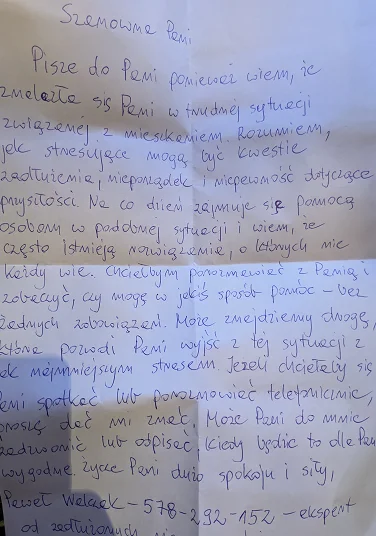 Szanowna Pani
Piszę do Pani ponieważ wiem, że
znalazła się Pani w trudnej sytuacji
związanej z mieszkaniem. Rozumiem,
jak stresujące mogą być kwestie
zadłużenia, nieporządek i niepewność dotyczące
przyszłości. Na co dzień zajmuję się pomocą
osobom w podobnej sytuacji i wiem, że
często istnieją rozwiązania, o których nie
każdy wie. Chciałbym porozmawiać z Panią i
zobaczyć, czy mogę w jakiś sposób pomóc – bez
żadnych zobowiązań. Może znajdziemy drogę,
która pozwoli Pani wyjść z tej sytuacji z
jak najmniejszym stresem. Jeżeli chciałaby się
Pani spotkać lub porozmawiać telefonicznie,
proszę dać mi znać. Może Pani do mnie
zadzwonić lub odpisać, kiedy będzie to dla Pani
wygodne. Życzę Pani dużo spokoju i siły,
Paweł – 578-292-152 – ekspert
od zadłużonych